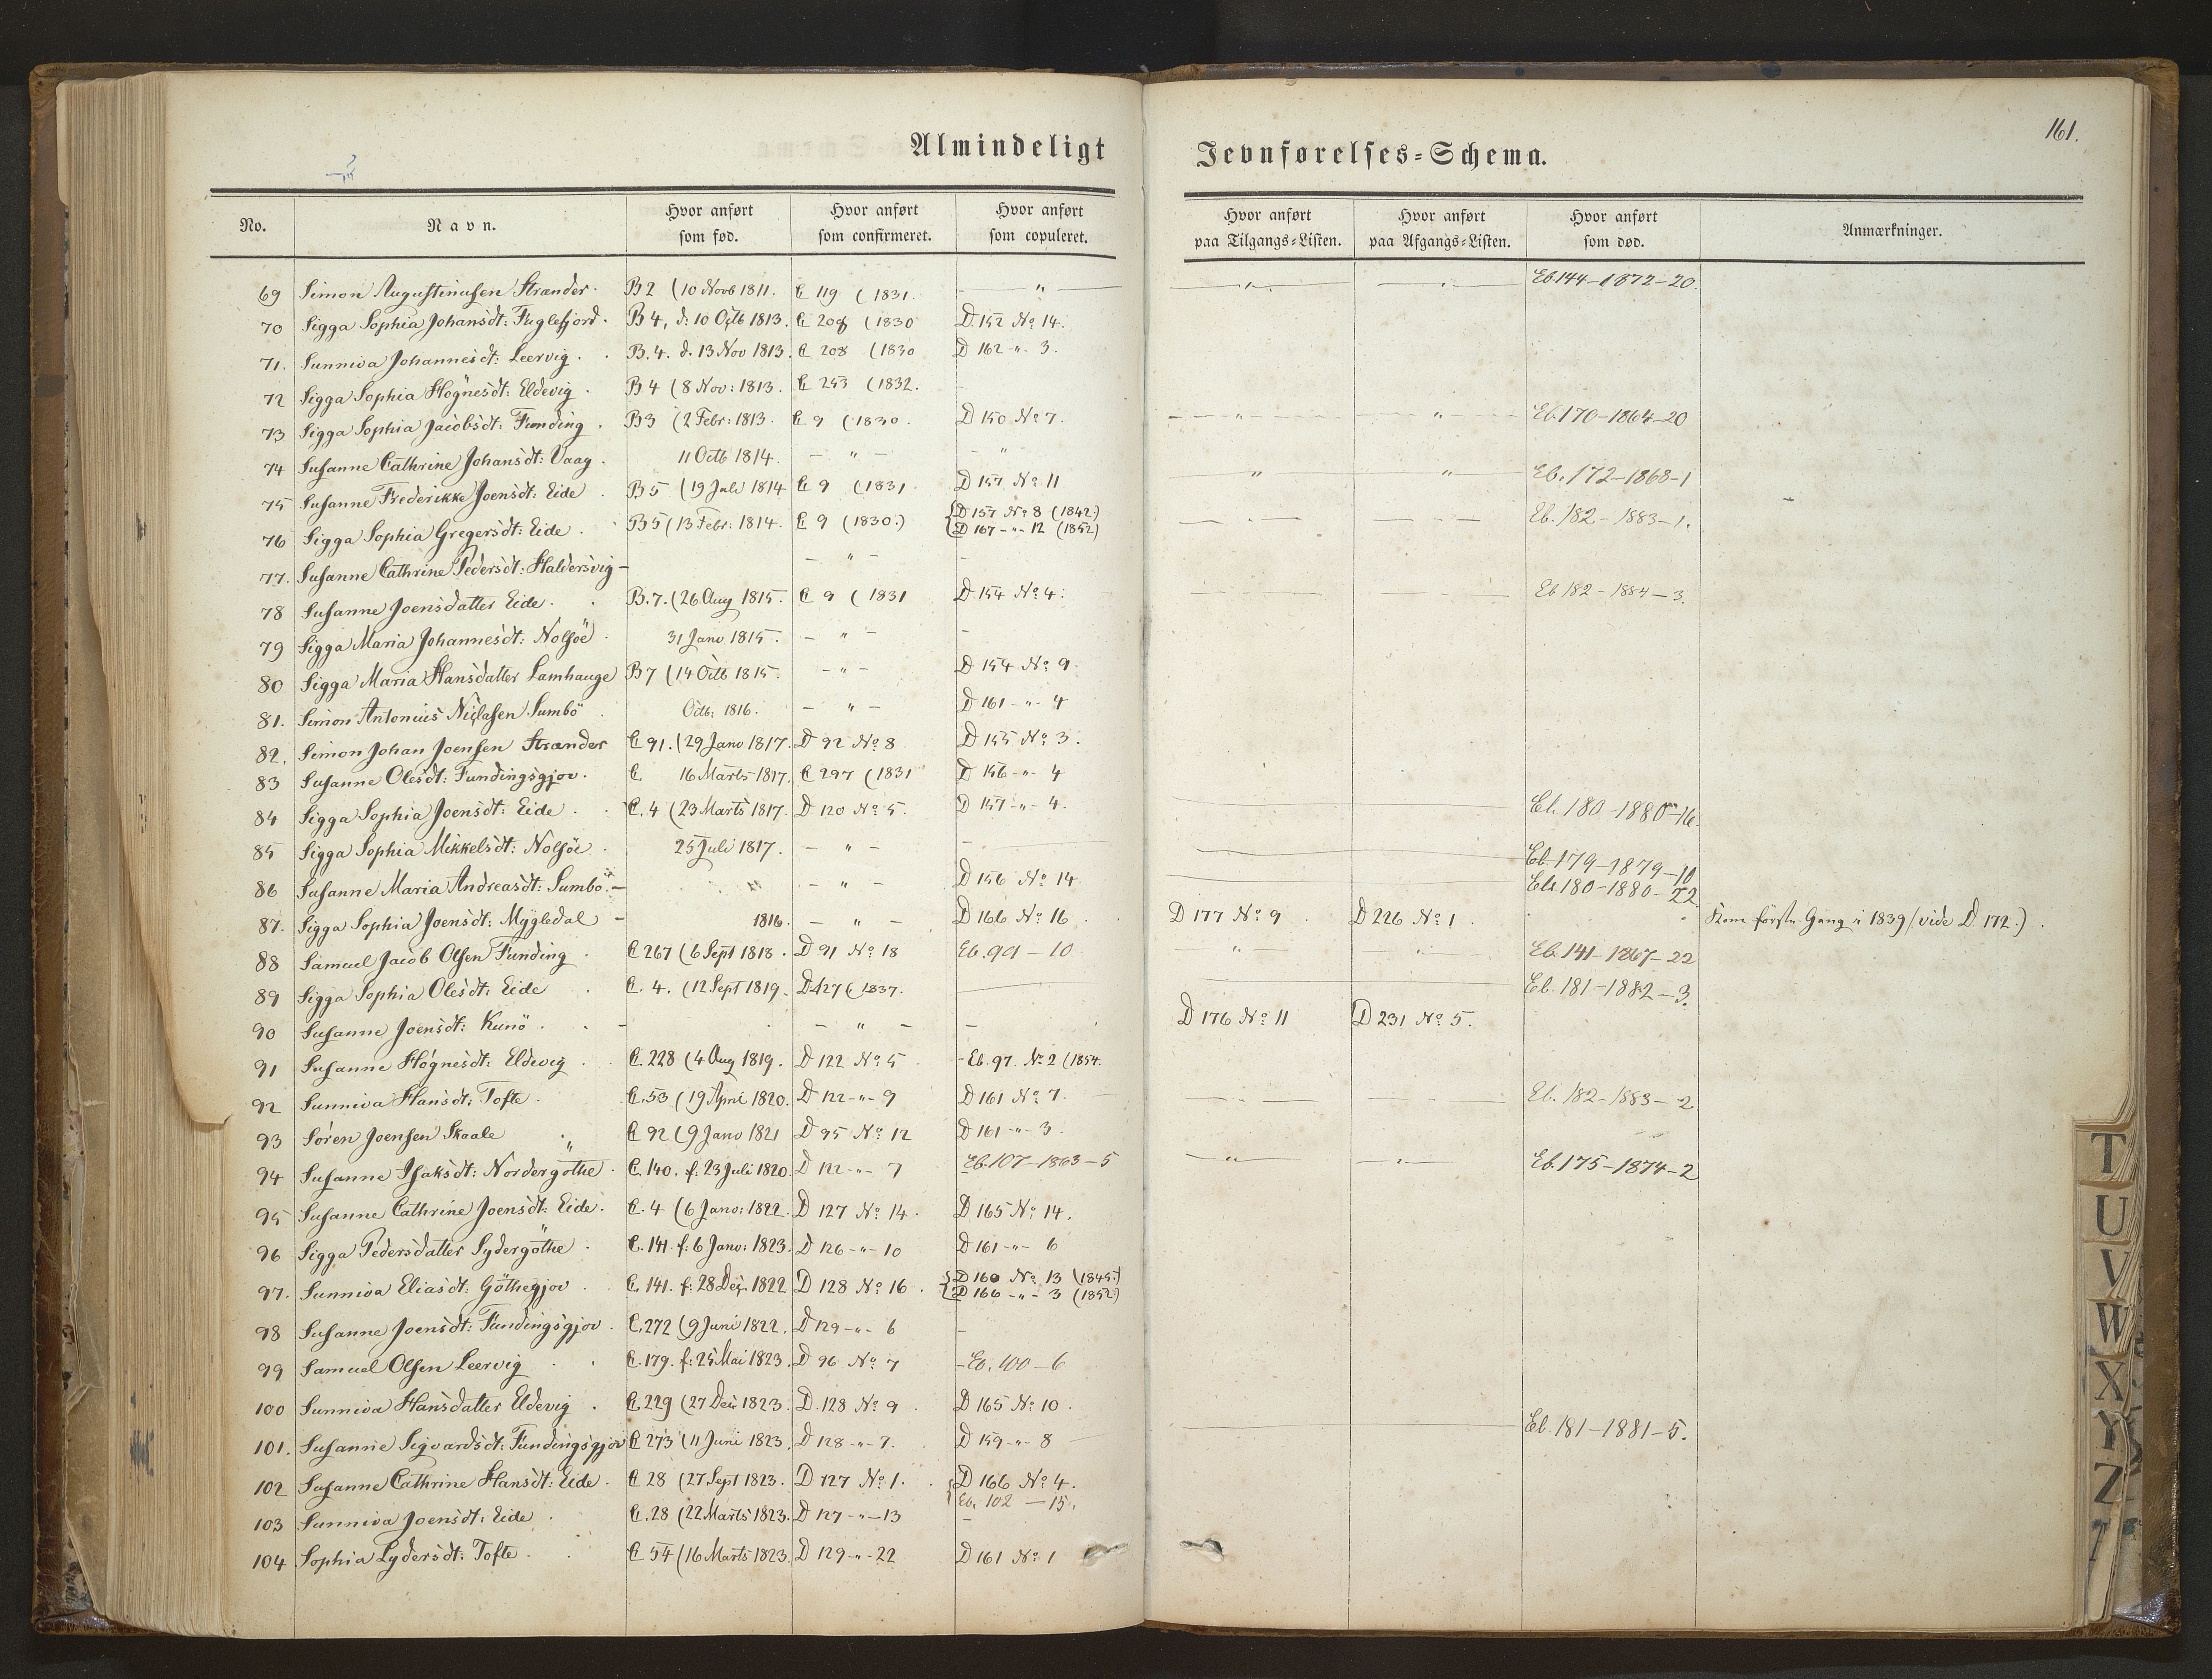 161.
Almindeligt Jevnførelses=Schema.
No. Navn. Hvor anført som fød. Hvor anført som confirmeret. Hvor anført som copuleret. Hvor anført paa Tilgangs=Listen. Hvor anført paa Afgangs=Listen. Hvor anført som død. Anmærkninger.
69 Simon Augustinusen Strænder. B 2 (10 Novb 1811. C 119 (1831. — " — — " — — " — Eb 144-1872-20.
70 Sigga Sophia Johansdt: Fuglefjord. B 4, d: 10 Octb 1813. C 208 (1830 D. 152 No 14.
71. Sunniva Johannesdt: Leervig. B. 4. d. 13 Nov 1813. C 208 (1830 D 162 -"- 3.
72 Sigga Sophia Högnesdt: Eldevig. B 4 (8 Nov: 1813. C 253 (1832. -
73 Sigga Sophia Jacobsdt: Funding. B 3 (2 Febr: 1813. C 9 (1830. D 150 No 7. — " — — " — Eb. 170-1864-20
74 Susanne Cathrine Johansdt: Vaag. 11 Octb 1814. — " — - "
75 Susanne Frederikke Joensdt: Eide. B 5 (19 Juli 1814 C 9 (1831 D 157 No 11 " " Eb. 172-1868-1
76 Sigga Sophia Gregersdt: Eide. B 5 (13 Febr: 1814. C 9 (1830.) {D 157 No 8 (1842.)
{D 167 -"- 12 (1852) — - — — - — Eb. 182-1883-1.
77. Susanne Cathrine Pedersdt: Haldersvig — — " — -
78 Susanne Joensdatter Eide. B. 7. (26 Aug 1815. C 9 (1831 D 154 No 4. Eb 182-1884-3.
79 Sigga Maria Johannesdt: Nolsöe. 31 Janv 1815. — " — -
80 Sigga Maria Hansdatter Lamhauge B 7 (14 Octb 1815. — " — D 154 No 9.
81. Simon Antonius Niclasen Sumbö Octb: 1816. — " — D 161 -"- 4
82. Simon Johan Joensen Strænder C 91. (29 Janv 1817. D 92 No 8 D 155 No 3.
83 Susanne Olesdt: Fundingsgjov. C 16 Marts 1817. C 297 (1831 D 156 -"- 4
84 Sigga Sophia Joensdt: Eide. C. 4 (23 Marts 1817. D 120 No 5. D 157 -"- 4. Eb. 180-1880-16.
85 Sigga Sophia Mikkelsdt: Nolsöe. 25 Juli 1817. — " — - Eb. 179-1879-10
86 Susanne Maria Andreasdt: Sumbö. — — " — D 156 No 14 Eb. 180-1880-22
87. Sigga Sophia Joensdt: Mygledal — 1816. — " — D 166 No 16 D 177 No 9 D 226 No 1. Kom förste Gang i 1839 (vide D. 172.)
88 Samuel Jacob Olsen Funding C 267 (6 Sept 1818. D 91 No 18 Eb. 99-10 — " — — " — Eb. 141-1867-22
89 Sigga Sophia Olesdt: Eide C. 4. (12 Sept 1819. D 127 (1837. Eb. 181-1882-3.
90 Susanne Joensdt: Kunö. - — " — - D 176 No 11 D 231 No 5.
91 Susanne Högnesdt: Eldevig C. 228 (4 Aug 1819. D 122 No 5 -Eb. 97. No 2 (1854.
92 Sunniva Hansdt: Tofte. C. 53 (19 April 1820. D 122 -"- 9 D 161 No 7. Eb. 182-1883-2
93 Sören Joensen Skaale " C 92 (9 Janv 1821 D 95 No 12 D 161 -"- 3.
94 Susanne Isaksdt: Nordergöthe. C. 140. f: 23 Juli 1820. D 122 -"- 7 Eb. 107-1863-5 — " — — " — Eb. 175-1874-2
95 Susanne Cathrine Joensdt: Eide. C. 4 (6 Janv: 1822. D 127 No 14. D 165 No 14.
96 Sigga Pedersdatter Sydergöthe. C. 141. f: 6 Janv: 1823. D 126 -"- 10 D 161 -"- 6
97. Sunniva Eliasdt: Göthegjov. C. 141. f: 28 Dec 1822 D 128 No 16. {D 160 No 13 (1845.)
{D 166 -"- 3 (1852)
98 Susanne Joensdt: Fundingsgjov. C. 272 (9 Juni 1822. D 129 -"- 6 -
99 Samuel Olsen Leervig C. 179. f: 25 Mai 1823. D 96 No 7 -Eb. 100-6
100 Sunniva Hansdatter Eldevig. C. 229 (27 Dec 1823. D. 128 No 9. D 165 No 10.
101. Susanne Sigvardsdt: Fundingsgjov C 273 (11 Juni 1823. D 128 -"- 7. D 159 -"- 8 Eb. 181-1881-5.
102 Susanne Cathrine Hansdt: Eide. C 28 (27 Sept 1823. D 127 No 1. {D 166 No 4.
{Eb. 102-15.
103 Sunniva Joensdt: Eide. C. 28 (22 Marts 1823. D 127 -"- 13 -
104 Sophia Lydersdt: Tofte. C 54 (16 Marts 1823. D 129 -"- 22 D 161 No 1
T
U
V
W
X
Y
Z